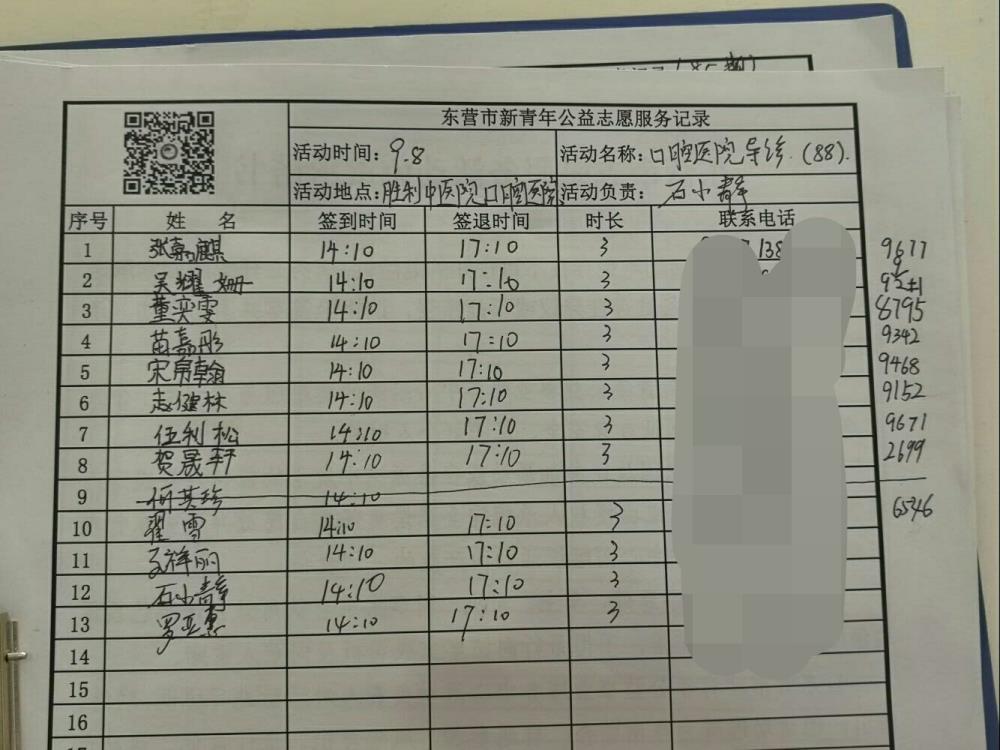 东营市新青年公益志愿服务记录
活动时间：9.8 活动名称：口腔医院导诊.(88).
活动地点：胜利中医院口腔医院 活动负责：石小静
序号 姓 名 签到时间 签退时间 时长 联系电话
1 张嘉麒 14:10 17:10 3 138 9677
2 吴耀姗 14:10 17:10 3
3 董奕雯 14:10 17:10 3 8795
4 苗嘉彤 14:10 17:10 3 9342
5 宋帛翰 14:10 17:10 3 9468
6 志健林 14:10 17:10 3 9152
7 任利松 14:10 17:10 3 9671
8 贺晟轩 14:10 17:10 3 2699
9 何英珍 14:10
10 翟雪 14:10 17:10 3 6546
11 祥丽 14:10 17:10 3
12 石小静 14:10 17:10 3
13 罗亚惠 14:10 17:10 3
14
15
16